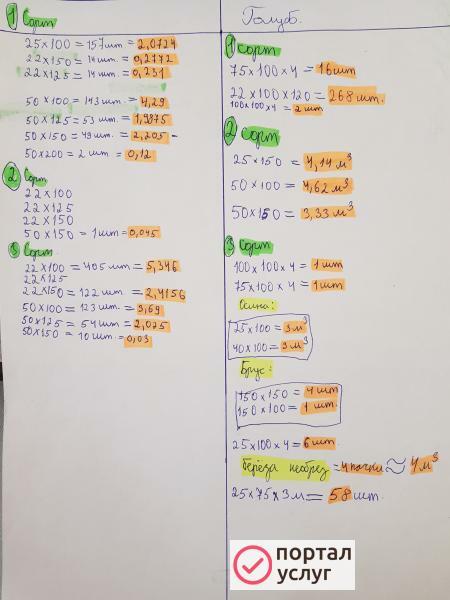 1 Сорт
25×100 = 157 шт. = 2,0724
22×150 = 14 шт. = 0,2772
22×125 = 14 шт. = 0,231
50×100 = 143 шт. = 4,29
50×125 = 53 шт. = 1,9875
50×150 = 49 шт. = 2,205 -
50×200 = 2 шт = 0,12
2 Сорт
22×100
22×125
22×150
50×150 = 1 шт = 0,045
3 Сорт.
22×100 = 405 шт = 5,346
22×125
22×150 = 122 шт. = 2,4156
50×100 = 123 шт. = 3,69
50×125 = 54 шт. = 2,025
50×150 = 10 шт. = 0,03
Голуб.
1 сорт
75×100×4 = 16 шт
22×100×120 = 268 шт.
100×100×4 = 2 шт
2 сорт
25×150 = 4,14 м³
50×100 = 4,62 м³
50×150 = 3,33 м³
3 сорт
100×100×4 = 1 шт
75×100×4 = 1 шт
Осина:
25×100 = 3 м³
40×100 = 3 м³
Брус:
150×150 = 4 шт
150×100 = 1 шт.
25×100×4 = 6 шт.
берёза необрез = 4 пачки ≈ 4 м³
25×75×3 м = 58 шт.
портал
услуг